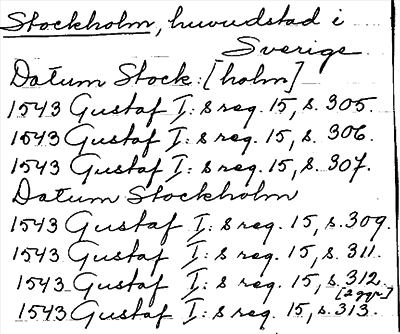 Stockholm, huvudstad i
Sverige
Datum Stock: [holm]
1543 Gustaf I: s reg. 15, s. 305.
1543 Gustaf I: s reg. 15, s. 306.
1543 Gustaf I: s reg. 15, s. 307.
Datum Stockholm
1543 Gustaf I: s reg. 15, s. 309.
1543 Gustaf I: s reg. 15, s. 311.
1543 Gustaf I: s reg. 15, s. 312
[2 ggr]
1543 Gustaf I: s reg. 15, s. 313.